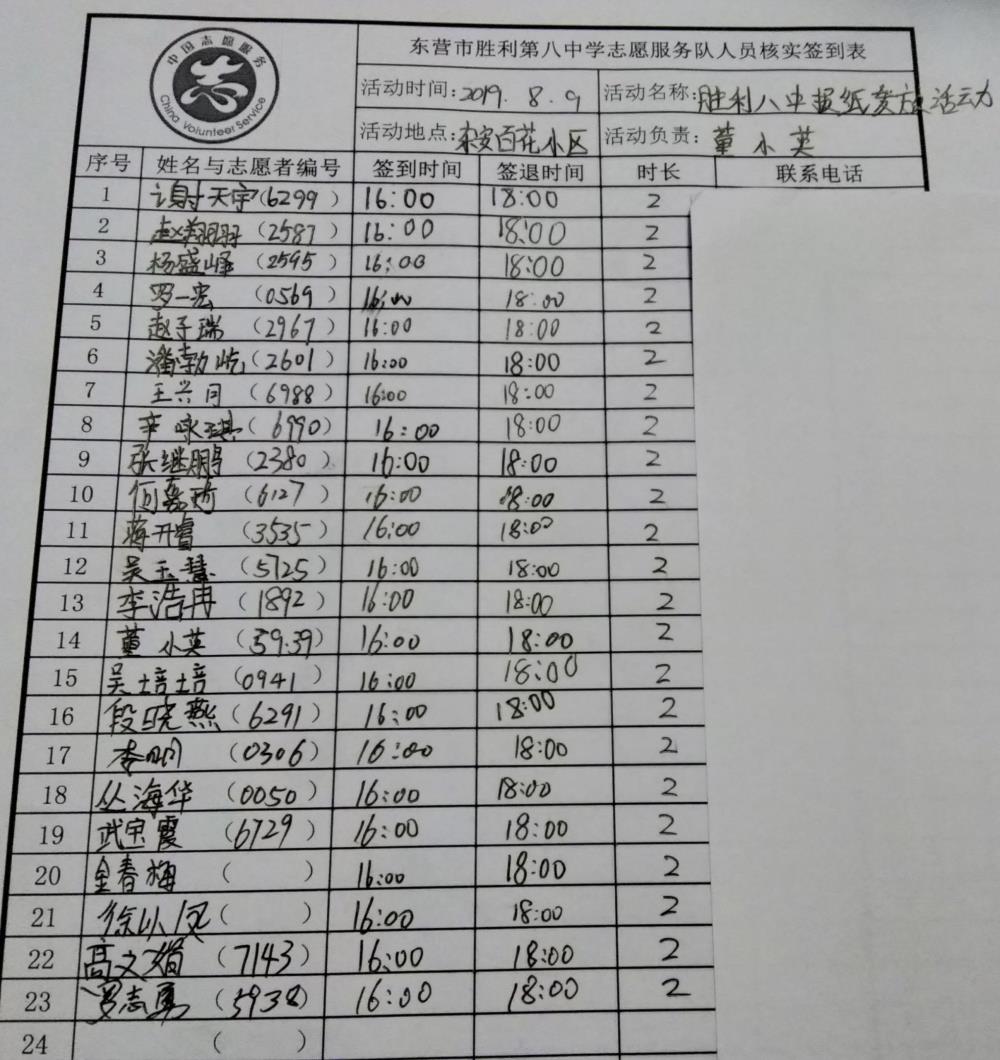 中国志愿服务
China Volunteer Service
东营市胜利第八中学志愿服务队人员核实签到表
活动时间:2019.8.9 活动名称:胜利八中报纸发放活动
活动地点:东安百花小区 活动负责:董小英
序号 姓名与志愿者编号 签到时间 签退时间 时长 联系电话
1 谢天宇(6299) 16:00 18:00 2
2 赵翔羽(2587) 16:00 18:00 2
3 杨盛峰(2595) 16:00 18:00 2
4 罗一宏(0569) 16:00 18:00 2
5 赵子瑞(2967) 16:00 18:00 2
6 潘勃屹(2601) 16:00 18:00 2
7 王兴同(6988) 16:00 18:00 2
8 辛咏琪(6990) 16:00 18:00 2
9 张继鹏(2380) 16:00 18:00 2
10 何嘉琦(6127) 16:00 18:00 2
11 蒋开睿(3535) 16:00 18:00 2
12 吴玉慧(5725) 16:00 18:00 2
13 李浩冉(1892) 16:00 18:00 2
14 董小英(5939) 16:00 18:00 2
15 吴培培(0941) 16:00 18:00 2
16 段晓燕(6291) 16:00 18:00 2
17 李明(0306) 16:00 18:00 2
18 丛海华(0050) 16:00 18:00 2
19 武宝霞(6729) 16:00 18:00 2
20 金春梅( ) 16:00 18:00 2
21 徐以凤( ) 16:00 18:00 2
22 高文娟(7143) 16:00 18:00 2
23 罗志勇(5938) 16:00 18:00 2
24 ( )